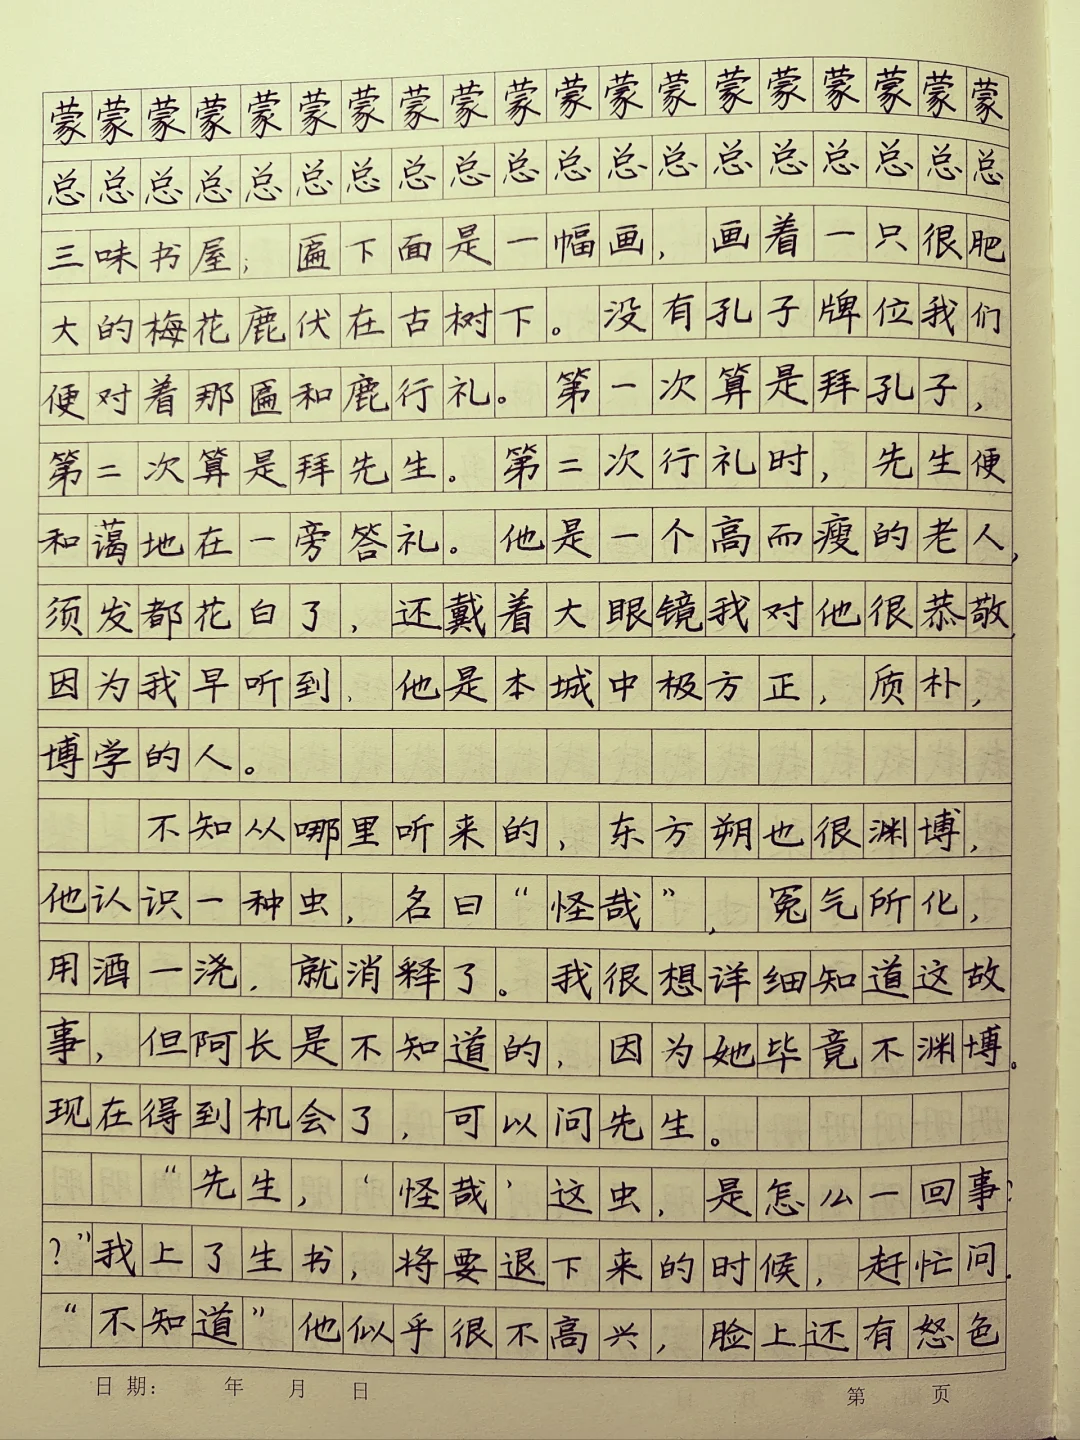 蒙蒙蒙蒙蒙蒙蒙蒙蒙蒙蒙蒙蒙蒙蒙蒙蒙蒙蒙
总总总总总总总总总总总总总总总总总总总
三味书屋；匾下面是一幅画，画着一只很肥
大的梅花鹿伏在古树下。没有孔子牌位我们
便对着那匾和鹿行礼。第一次算是拜孔子，
第二次算是拜先生。第二次行礼时，先生便
和蔼地在一旁答礼。他是一个高而瘦的老人，
须发都花白了，还戴着大眼镜我对他很恭敬，
因为我早听到，他是本城中极方正，质朴，
博学的人。
不知从哪里听来的，东方朔也很渊博，
他认识一种虫，名曰“怪哉”，冤气所化，
用酒一浇，就消释了。我很想详细知道这故
事，但阿长是不知道的，因为她毕竟不渊博。
现在得到机会了，可以问先生。
“先生，‘怪哉’这虫，是怎么一回事？
？”我上了生书，将要退下来的时候，赶忙问.
“不知道”他似乎很不高兴，脸上还有怒色
日期： 年 月 日
第 页